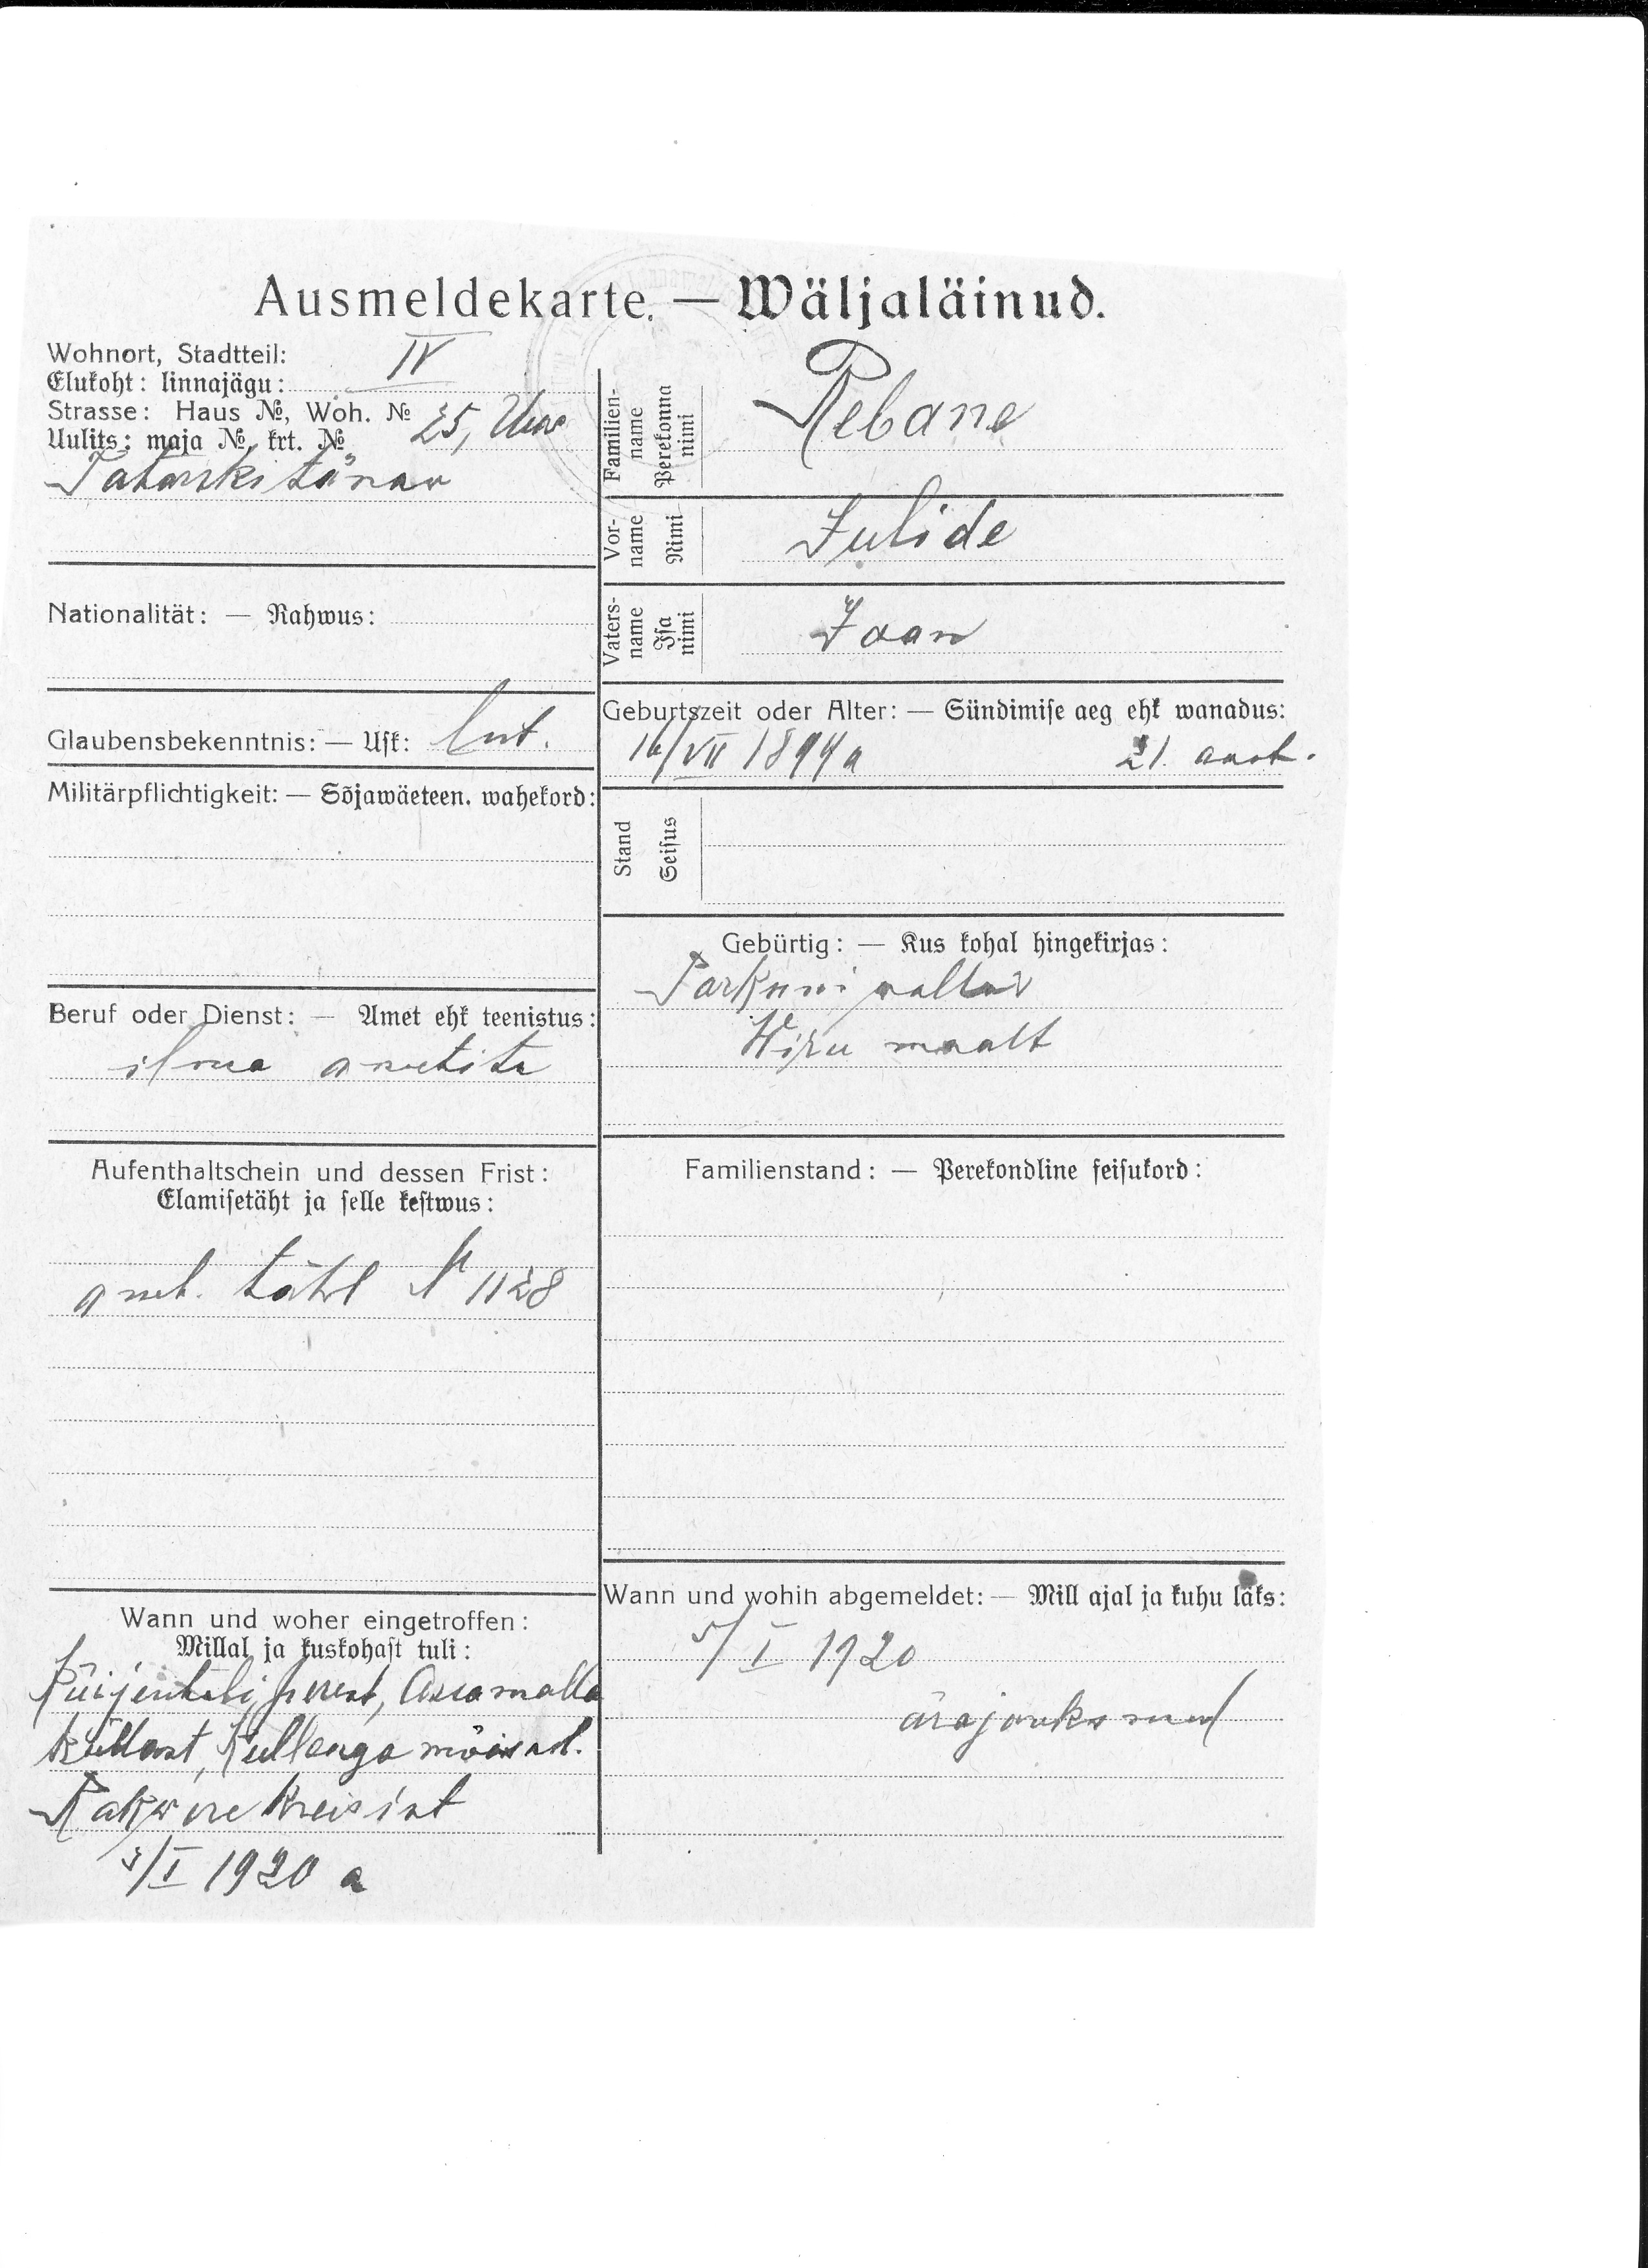 Ausmeldekarte. — Wäljaläinud.
Wohnort, Stadtteil: IV
Elukoht: linnajägu:
Strasse: Haus №, Woh. № 25, Uus
Uulits: maja №, krt. №
Tatarski tänaw
Nationalität: — Rahwus:
Glaubensbekenntnis: — Usk: lut.
Militärpflichtigkeit: — Sõjawäeteen. wahekord:
Beruf oder Dienst: — Amet ehk teenistus:
ilma ametita
Aufenthaltschein und dessen Frist:
Elamisetäht ja selle kestwus:
amet. täht № 1128
Wann und woher eingetroffen:
Millal ja kuskohast tuli:
perest, Assamalla
küllast, Küllenga mõisast.
Rakwere kreisist
3/I 1920 a
Familien-
name
Perekonna
nimi
Rebane
Vor-
name
Nimi
Julide
Vaters-
name
Isa
nimi
Jaan
Geburtszeit oder Alter: — Sündimise aeg ehk wanadus:
16/VII 1894 a 21. aast.
Stand
Seisus
Gebürtig: — Kus kohal hingekirjas:
Porkuni wallas
Wiru maalt
Familienstand: — Perekondline seisukord:
Wann und wohin abgemeldet: — Mill ajal ja kuhu läks:
5/I 1920
ärajooksnud